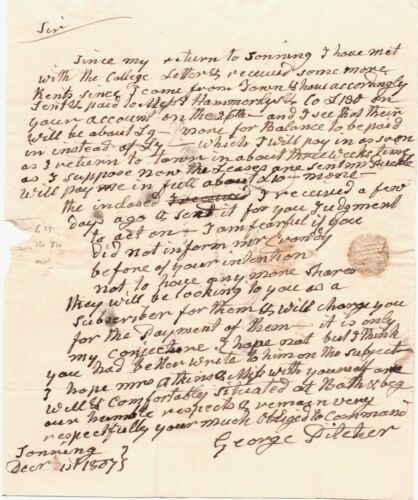 Sir
Since my return to Sonning I have met
with the College Letter & received some more
Rents since I came from Town & have accordingly
sent & paid to Messrs Hammersleys & Co £130 on
your account on the 26th and I see that their
will be about £9 - more for Balance to be paid
in instead of £4 - which I will pay in as soon
as I return to Town in about three weeks time
as I suppose now the Leases are sent
will pay me in full about £10 - more -
the inclosed I received a few
days ago & sent it for you Judgment
to act on - I am fearful if you
did not inform Mr
before of your intention
not to have any more shares
they will be looking to you as a
subscriber for them & will charge you
for the Payment of them - it is only
my conjecture I hope not but I think
you had better write to him on the subject
I hope Mrs Atkins & Miss with yourself are
well & comfortably situated at Bath & beg
our humble respects & remain very
respectfully your much obliged to command
George Pitcher
Sonning
Decr 1st 1807
£ 25